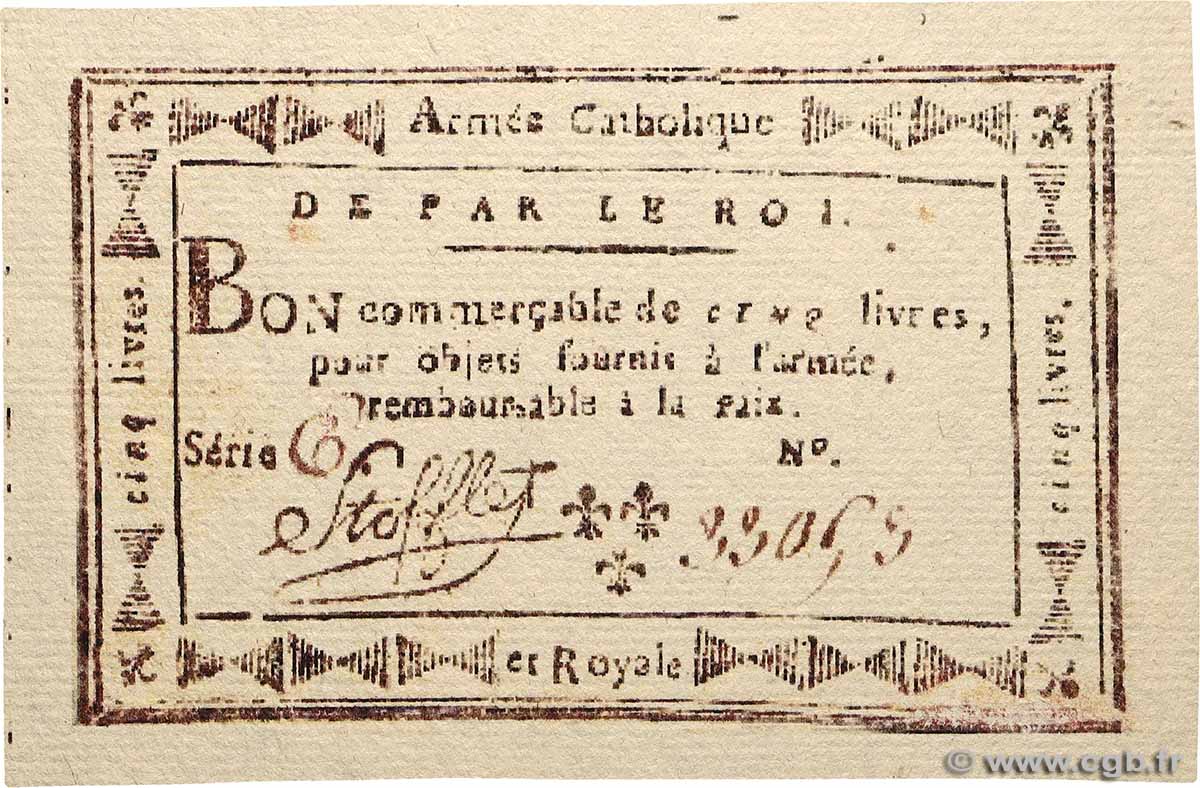 Armée Catholique
DE PAR LE ROI.
BON commerçable de cinq livres,
pour objets fournis à l'armée,
remboursable à la paix.
Série C Nº.
Stofflet 33065
et Royale
cinq livres.
cinq livres,
© www.cgb.fr